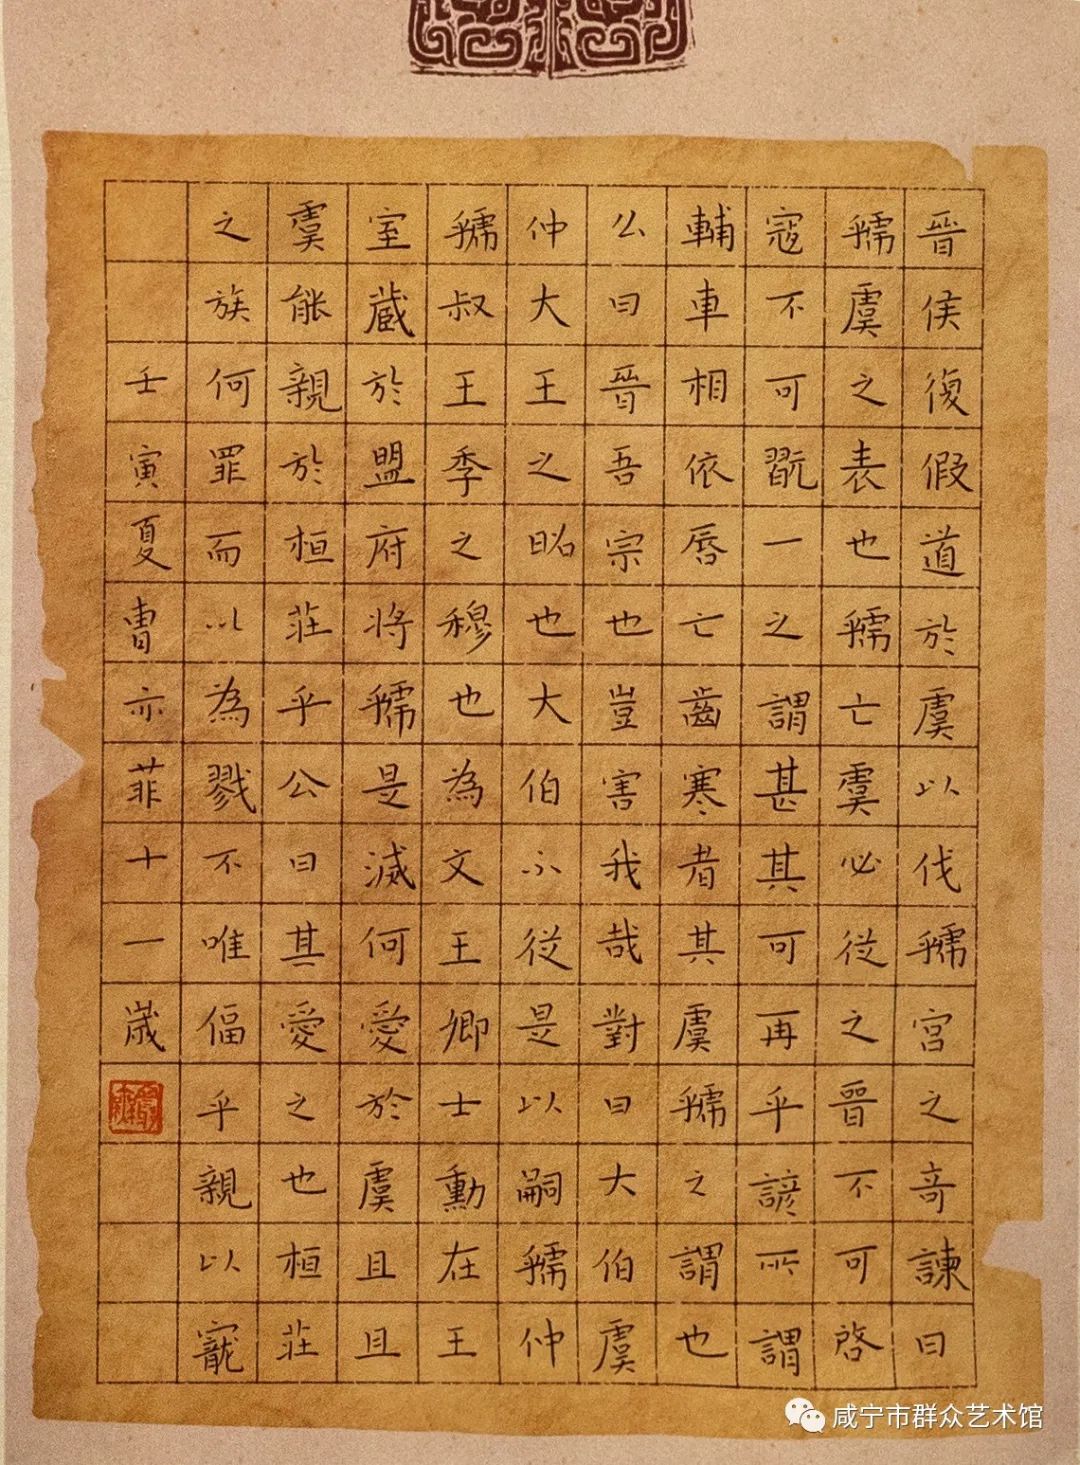 晉侯復假道於虞以伐虢宮之奇諫曰
虢虞之表也虢亡虞必從之晉不可啓
寇不可翫一之謂甚其可再乎諺所謂
輔車相依唇亡齒寒者其虞虢之謂也
公曰晉吾宗也豈害我哉對曰大伯虞
仲大王之昭也大伯不從是以嗣虢仲
虢叔王季之穆也為文王卿士勳在王
室藏於盟府將虢是滅何愛於虞且且
虞能親於桓莊乎公曰其愛之也桓莊
之族何罪而以為戮不唯偪乎親以寵
壬寅夏曹亦菲十一歲
咸宁市群众艺术馆